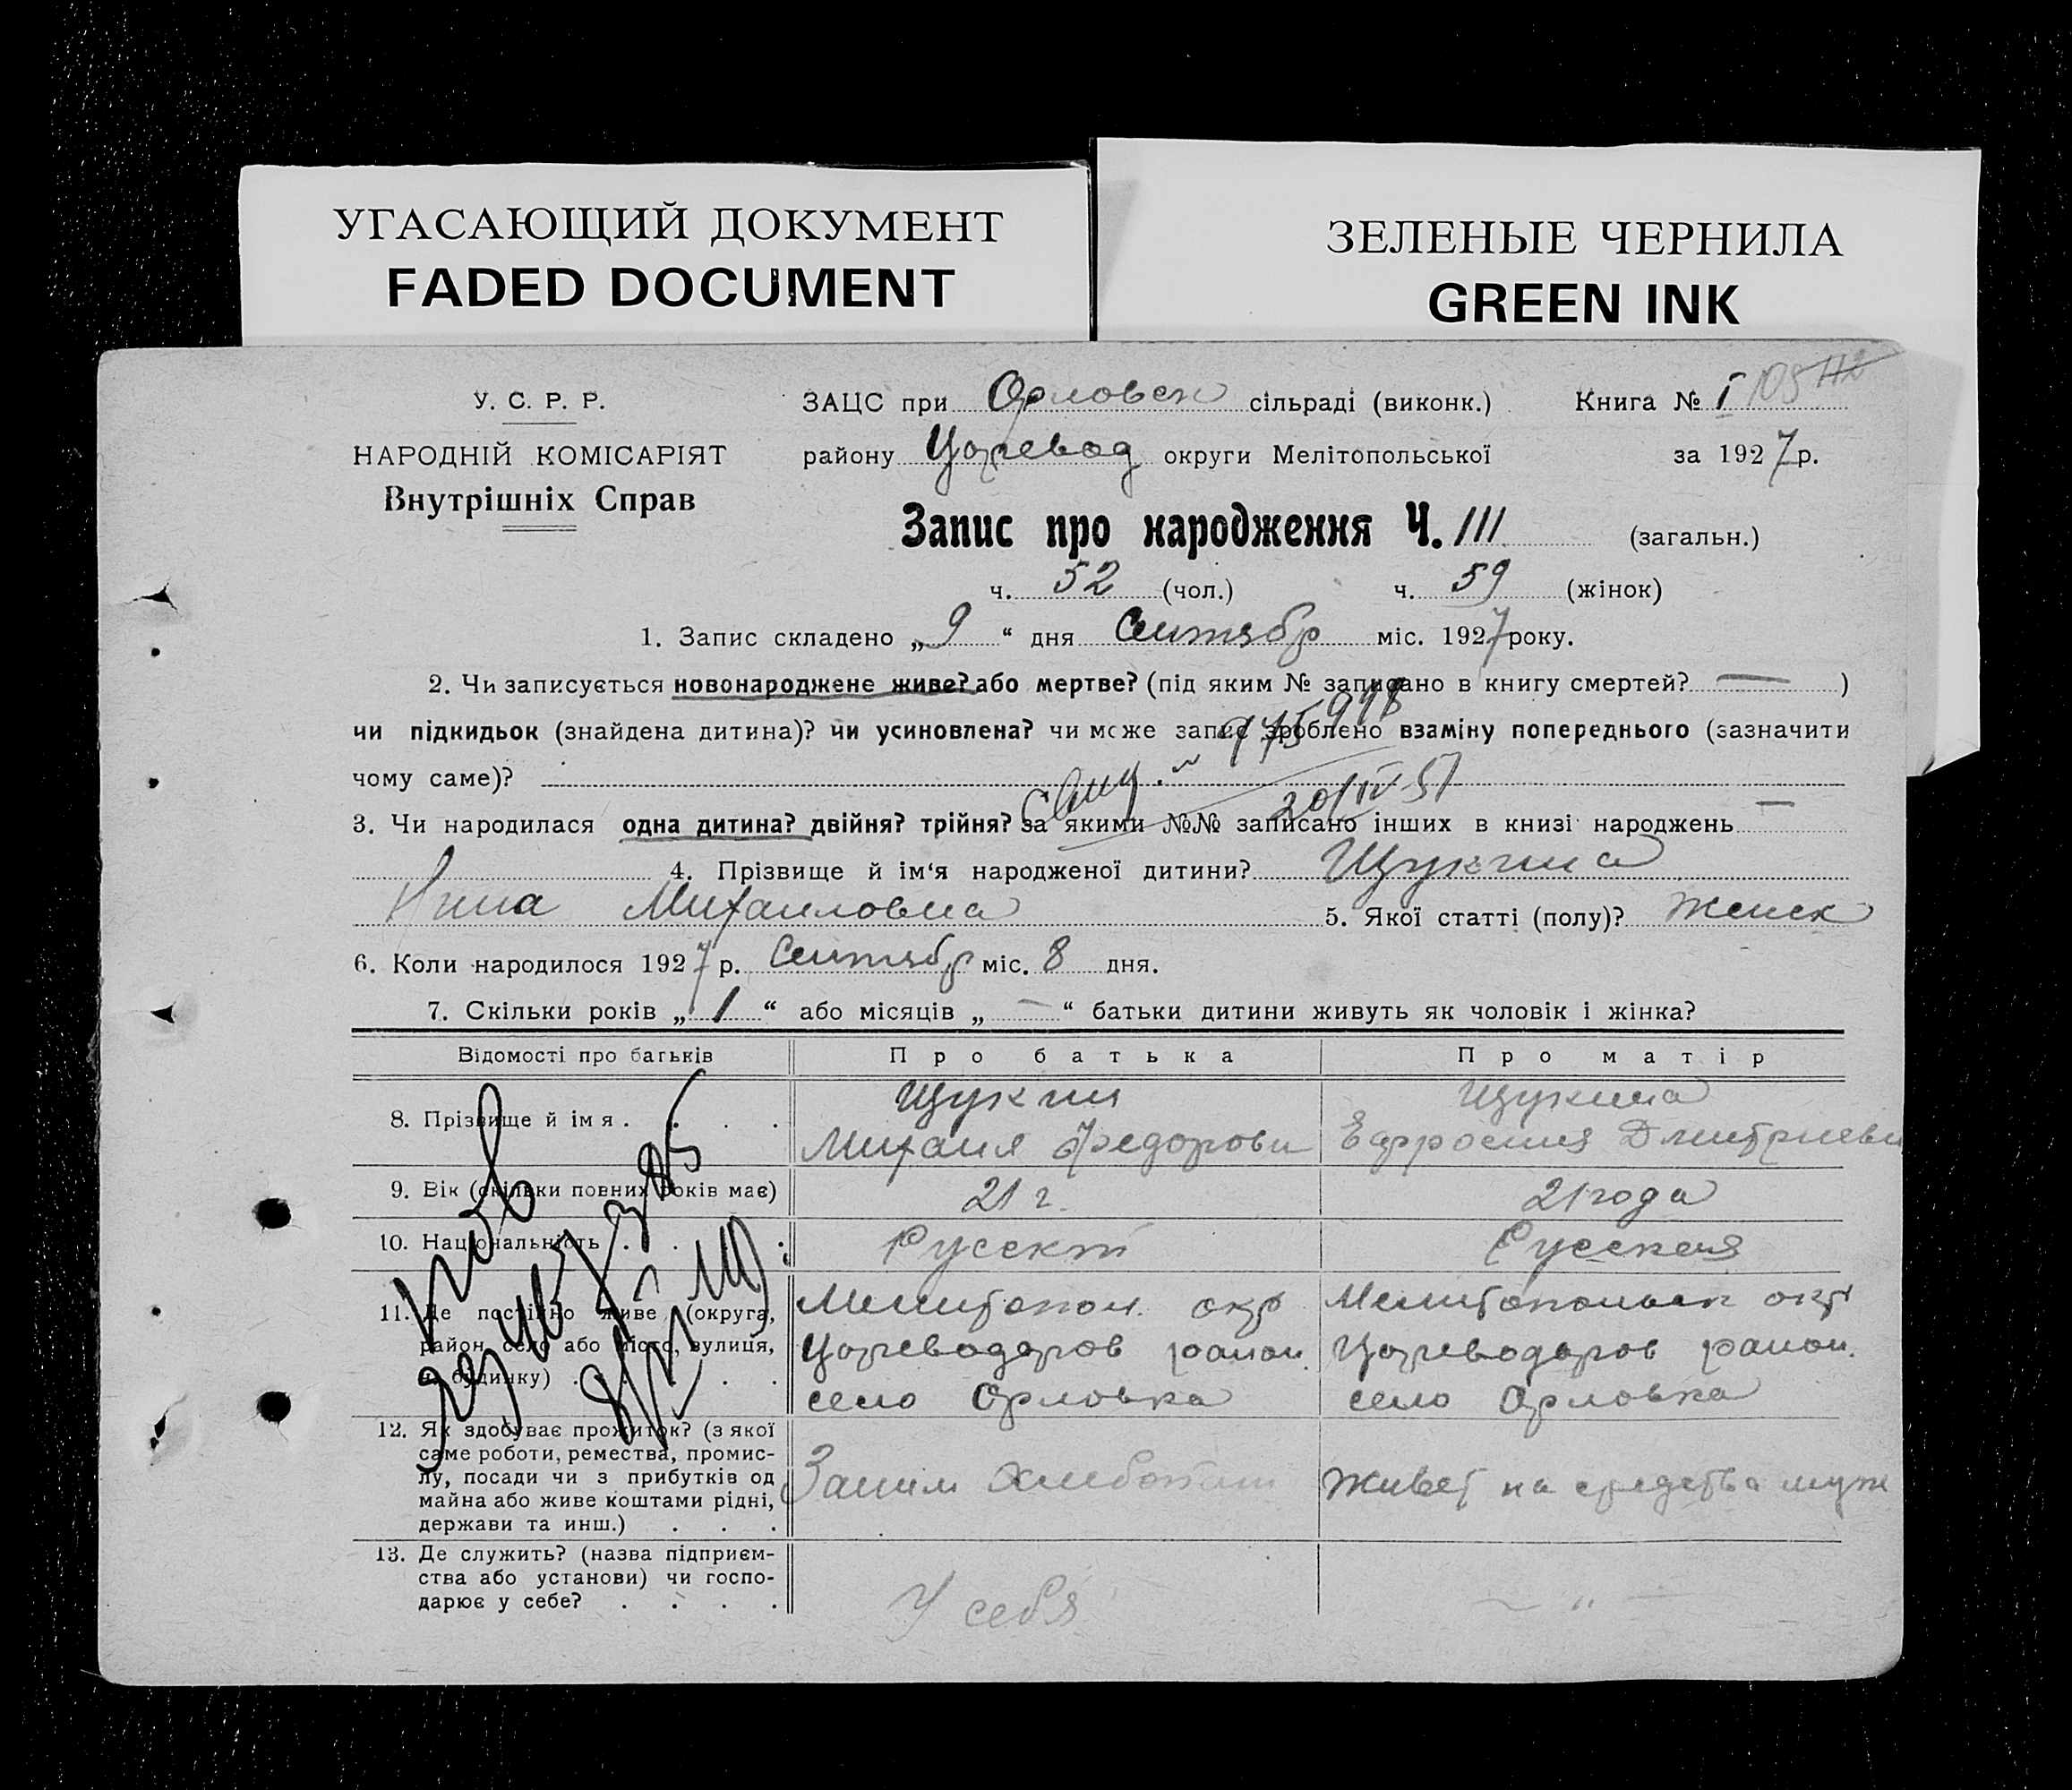 УГАСАЮЩИЙ ДОКУМЕНТ
FADED DOCUMENT
ЗЕЛЕНЫЕ ЧЕРНИЛА
GREEN INK
У. С. Р. Р.
НАРОДНІЙ КОМІСАРІЯТ
Внутрішніх Справ
ЗАЦС при Орловск сільраді (виконк.) Книга № I 105 112
району Царевод округи Мелітопольської за 1927 р.
Запис про народження Ч. 111 (загальн.)
ч. 52 (чол.) ч. 59 (жінок)
1. Запис складено „9“ дня Сентябр міс. 1927 року.
2. Чи записується новонароджене живе? або мертве? (під яким № записано в книгу смертей? — )
чи підкидьок (знайдена дитина)? чи усиновлена? чи може запис зроблено взаміну попереднього (зазначити
чому саме)?
20/IV 51
3. Чи народилася одна дитина? двійня? трійня? за якими №№ записано інших в книзі народжень —
4. Прізвище й ім‘я народженої дитини? Щукина
Нина Михаиловна 5. Якої статті (полу)? Женск
6. Коли народилося 1927 р. Сентябр міс. 8 дня.
7. Скільки років „1“ або місяців „—“ батьки дитини живуть як чоловік і жінка?
Відомості про батьків Про батька Про матір
8. Прізвище й імя . . . .
Щукин
Михаил Федорови
Щукина
Ефросиня Дмитриевн
9. Вік (скільки повних років має) 21 г. 21 года
10. Національність . . . Русскт Русская
11. Де постійно живе (округа,
район, село або місто, вулиця,
ч. будинку) . . . .
Мелитопол. окр
Цареводаров раион.
село Орловка
Мелитопольск окр
Цареводаров раион.
село Орловка
12. Як здобуває прожиток? (з якої
саме роботи, ремества, промис-
лу, посади чи з прибутків од
майна або живе коштами рідні,
держави та инш.) . . .
Заним хлебопаш
Живет на средства мужа
13. Де служить? (назва підприєм-
ства або установи) чи госпо-
дарює у себе? . . . .
У себя
— „ —